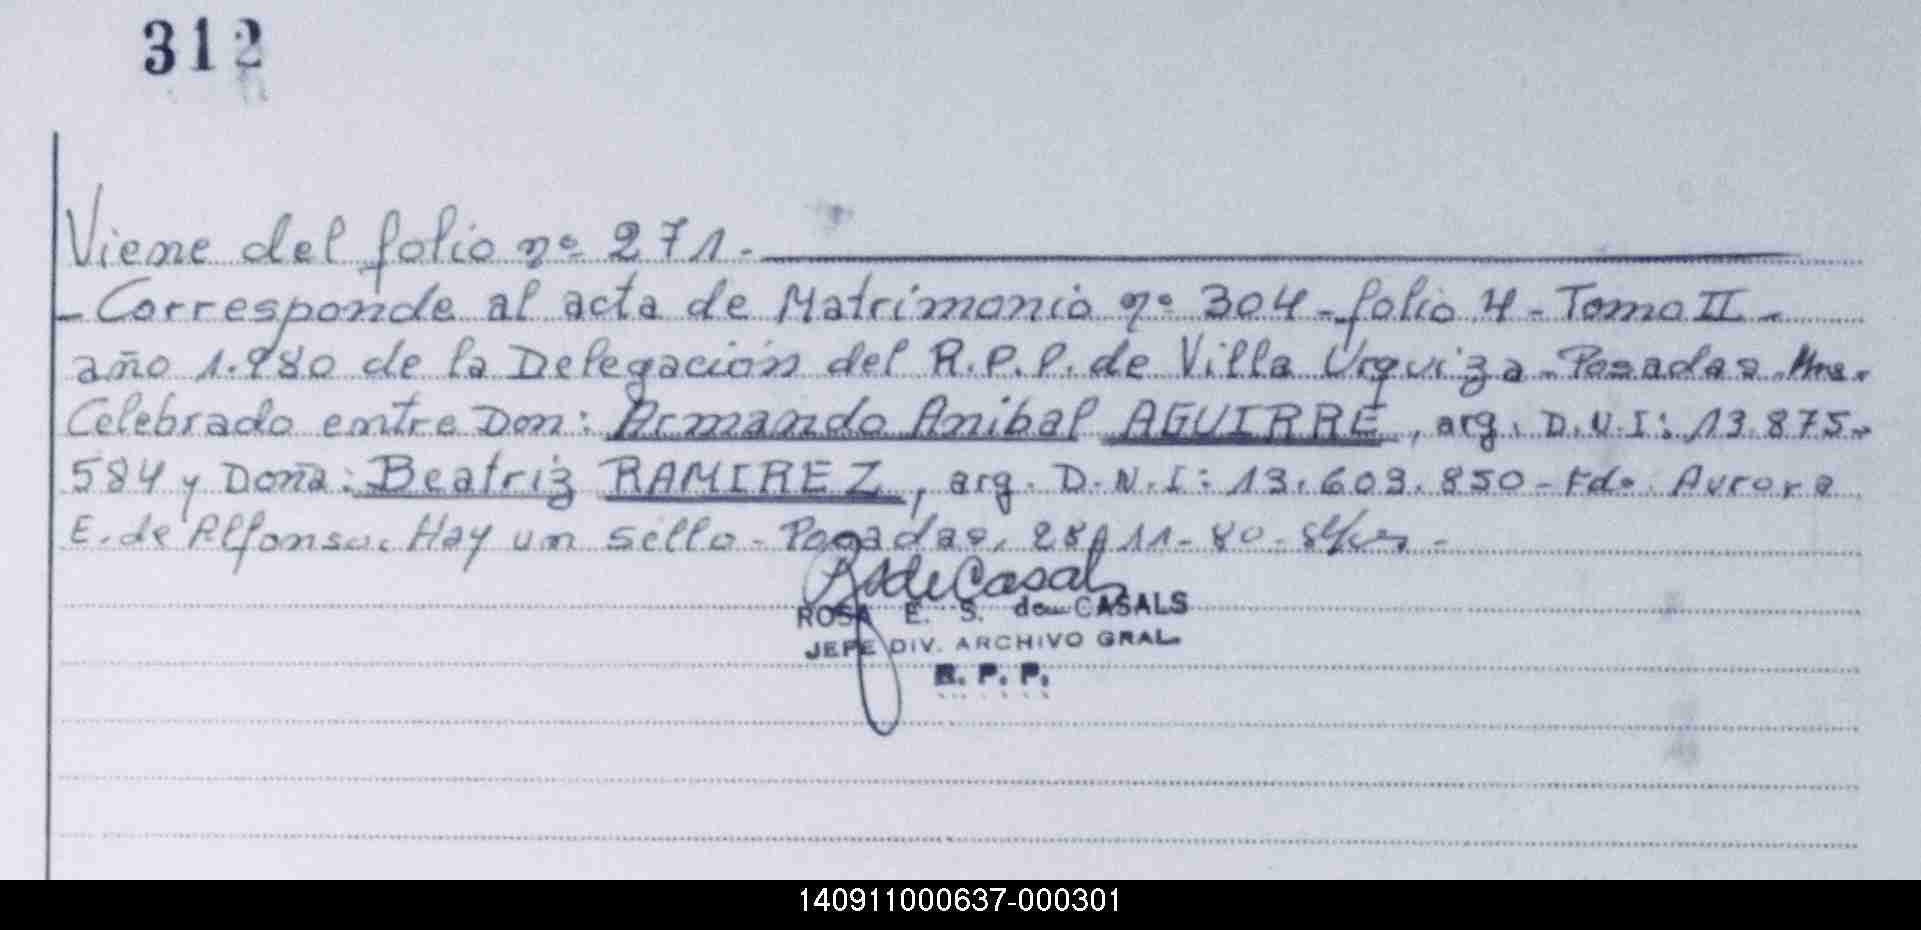 312
Viene del folio nº 271.
- Corresponde al acta de Matrimonio nº 304 - folio 4 - Tomo II -
año 1.980 de la Delegación del R.P.P. de Villa Urquiza - Posadas. Mns.
Celebrado entre Don: Armando Anibal AGUIRRE, arg. D.N.I: 13.875.
584 y Doña: Beatriz RAMIREZ, arg. D.N.I: 13.603.850 - Fdo. Aurora
E. de Alfonso. Hay un sello - Posadas, 28-11-80 -
ROSA E. S. de CASALS
JEFE DIV. ARCHIVO GRAL.
R. P. P.
140911000637-000301